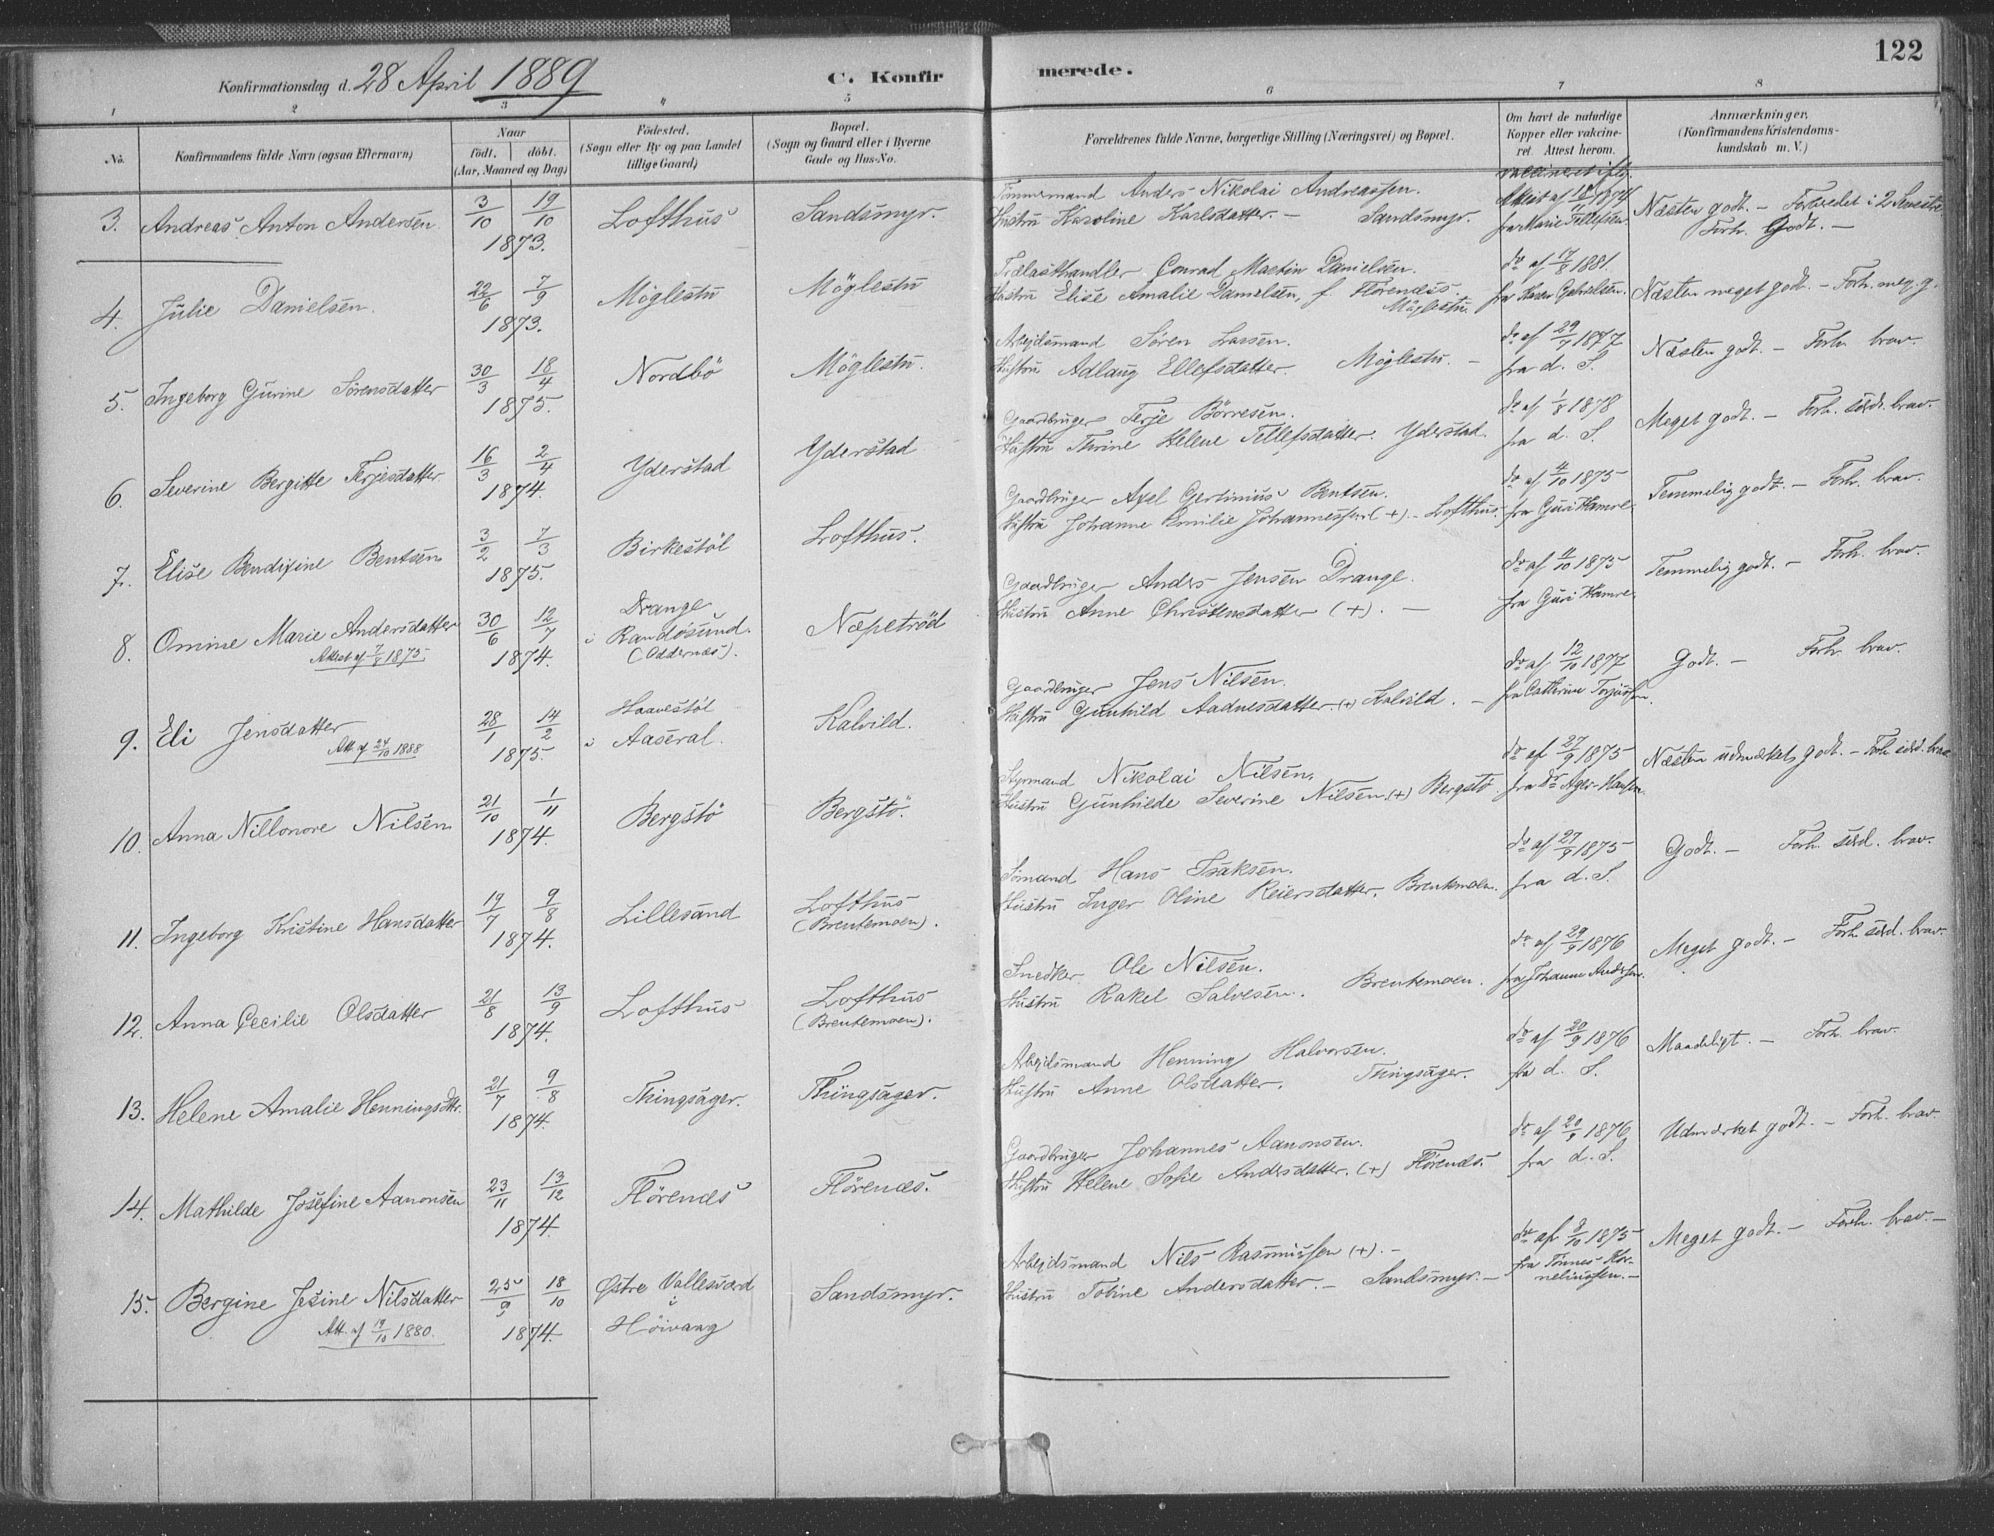 122
Konfirmationsdag d. 28 April 1889
C. Konfirmerede.
1 2 3 4 5 6 7 8
No.
Konfirmandens fulde Navn (ogsaa Efternavn)
Naar
født. døbt.
(Aar, Maaned og Dag)
Födested.
(Sogn eller By og paa Landet
tillige Gaard)
Bopæl.
(Sogn og Gaard eller i Byerne
Gade og Hus-No.
Forældrenes fulde Navne, borgerlige Stilling (Næringsvei) og Bopæl.
Om havt de naturlige
Kopper eller vakcine-
ret. Attest herom.
Anmærkninger.
(Konfirmandens Kristendoms-
kundskab m. V.)
3. Andreas Anton Andersen 3/10 19/10 1873. Lofthus Sandsmyr.
Tömmermand Anders Nikolai Andreassen.
Hustru Karoline Karlsdatter. — Sandsmyr.
fra Marie Tellefsen.
Næsten godt. — Forh. Godt. —
4. Julie Danielsen. 22/6 7/9 1873. Möglestu Möglestu
Trælasthandler Conrad Martin Danielsen.
Hustru Elise Amalie Danielsen, f. Florenæs. Möglestu.
do af 17/8 1881.
fra Karen Gabrielsen.
Næsten meget godt. — Forh. meg. g.
5. Ingeborg Gurine Sörensdatter 30/3 18/4 1875. Nordbö Möglestu.
Arbejdsmand Sören Larsen.
Hustru Adlaug Ellefsdatter. Möglestu. —
do af 29/7 1877
fra d. S.
Næsten godt. — Forh. brav.
6. Severine Bergitte Terjesdatter 16/3 2/4 1874. Yderstad Yderstad
Gaardbruger Terje Börresen.
Hustru Thrine Helene Tellefsdatter. Yderstad.
do af 1/8 1878
fra d. S.
Meget godt. — Forh. særd. brav.
7. Elise Bendixine Bentsen 3/2 7/3 1875. Birkestöl Lofthus.
Gaardbruger Axel Gertinius Bentsen.
Hustru Johanne Emilie Johannessen (+). — Lofthus.
do af 4/10 1875
fra Guri Hamre.
Temmelig godt. — Forh. brav.
8. Omine Marie Andersdatter 30/6 12/7 1874. Drange i Randösund. (Oddernæs). Næpetröd
Attest af 7/8 1875.
Gaardbruger Anders Jensen Drange.
Hustru Anne Christensdatter (+). —
do af 4/10 1875
fra Guri Hamre.
Temmelig godt. — Forh. brav.
9. Eli Jensdatter 28/1 14/2 1875. Haavestöl i Aaseral. Kalvild.
Att. af 24/10 1888
Gaardbruger Jens Nilsen.
Hustru Gunhild Aadnesdatter. (+) Kalvild. —
do af 12/10 1877
fra Cathrine Torjussen.
Godt. — Forh. brav.
10. Anna Nillonore Nilsen 21/10 1/11 1874. Bergstö Bergstö.
Styrmand Nikolai Nilsen.
Hustru Gunhilde Severine Nilsen. (+) Bergstö.
do af 27/9 1875
fra Dr Ager-Hansen.
Næsten udmærket godt. — Forh. særd. brav.
11. Ingeborg Kristine Hansdatter 19/7 9/8 1874. Lillesand Lofthus (Brentemoen).
Sömand Hans Isaksen.
Hustru Inger Oline Reiersdatter. Brentemoen.
do af 27/9 1875
fra d. S.
Godt. — Forh. særd. brav.
12. Anna Cecilie Olsdatter 21/8 13/9 1874. Lofthus Lofthus (Brentemoen).
Snedker Ole Nilsen.
Hustru Rakel Salvesen. Brentemoen.
do af 29/9 1876
fra Johanne Andersen.
Meget godt. — Forh. særd. brav.
13. Helene Amalie Henningsdtr. 21/7 9/8 1874. Thingsager. Thingsager.
Arbejdsmand Henning Halvorsen.
Hustru Anne Olsdatter. Thingsager.
do af 20/9 1876
fra d. S.
Maadeligt. — Forh. brav.
14. Mathilde Josefine Aanonsen 23/11 13/12 1874. Flörenæs Flörenæs.
Gaardbruger Johannes Aanonsen.
Hustru Helene Sofie Andersdatter. (+) Flörenæs.
do af 20/9 1876
fra d. S.
Udmærket godt. — Forh. brav.
15. Bergine Jesine Nilsdatter 25/9 18/10 1874. Østre Vallesværd i Höivaag Sandsmyr.
Att. af 19/10 1880.
Arbejdsmand Nils Rasmussen (+). —
Hustru Tobine Andersdatter. — Sandsmyr. —
do af 8/10 1875
fra Tönnes Kor-
neliussen. —
Meget godt. — Forh. brav. —